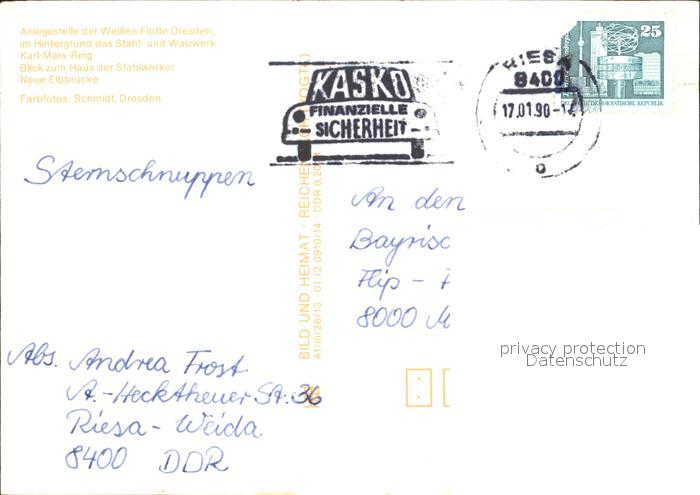 Anlegestelle der Weißen Flotte Dresden,
im Hintergrund das Stahl- und Walzwerk
Karl-Marx-Ring
Blick zum Haus der Stahlwerker
Neue Elbbrücke
Farbfotos: Schmidt, Dresden
KASKO
FINANZIELLE
SICHERHEIT
RIESA
8400
17.01.90-1
25
DEMOKRATISCHE REPUBLIK
Sternschnuppen
BILD UND HEIMAT · REICHEN
A1/III/26/13 · 01 12 0910/14 · DDR 0,20
An den
Bayrisc
Flip -
8000 M
privacy protection
Datenschutz
Abs. Andrea Frost
A.-Hecktheuer Str. 36
Riesa - Weida
8400 DDR